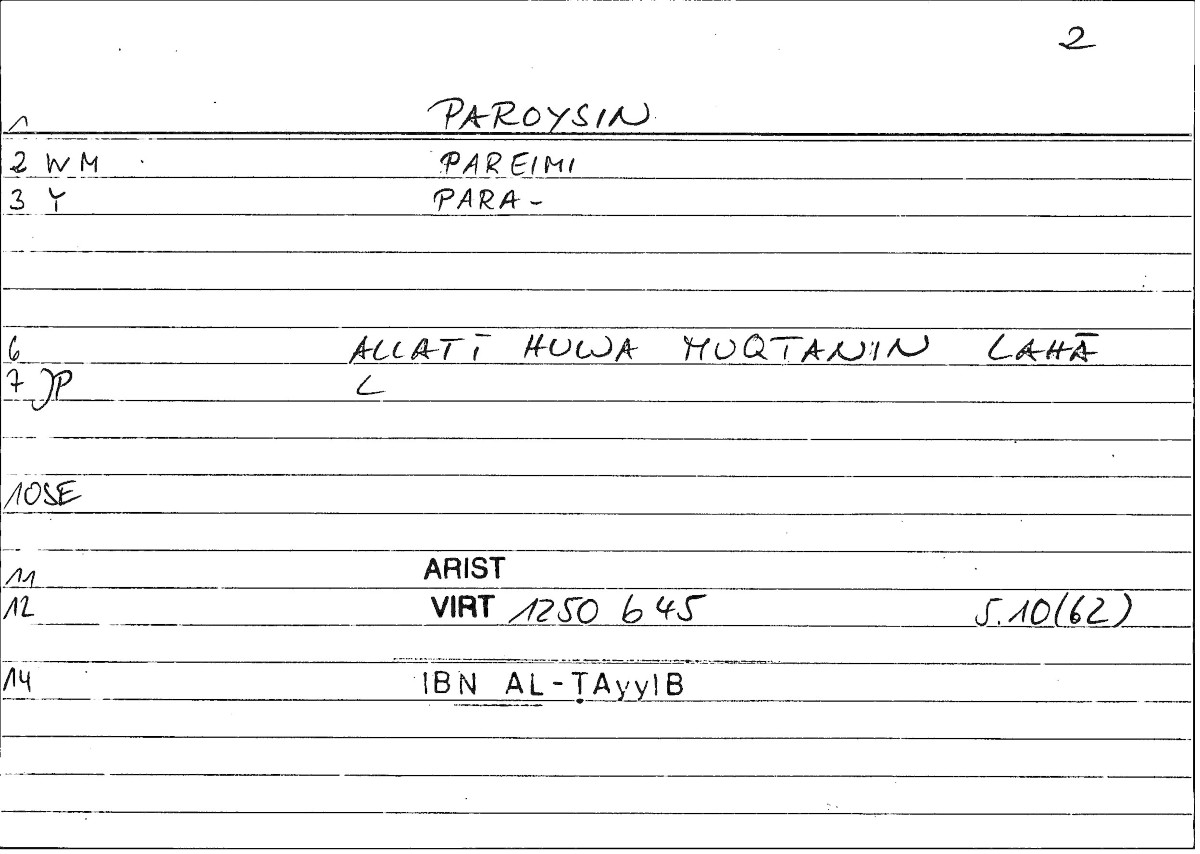 2
1 PAROYSIN
2 WM PAREIMI
3 Y PARA-
6 ALLATĪ HUWA MUQTANIN LAHĀ
7 JP L
10 SE
11 ARIST
12 VIRT 1250 b 45 5.10(62)
14 IBN AL-ṬAyyIB